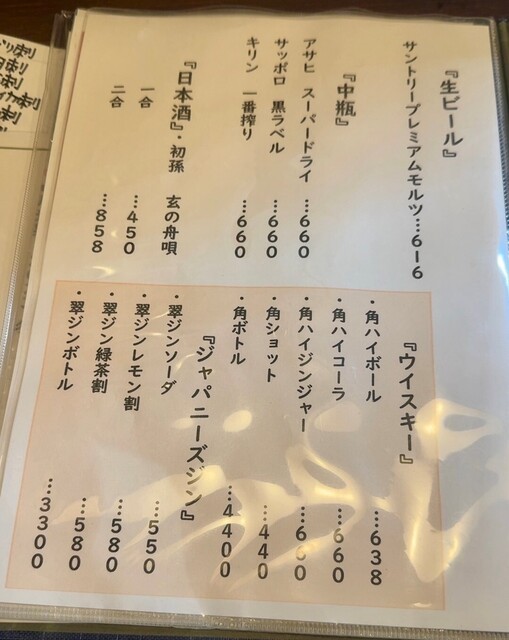 『生ビール』
サントリープレミアムモルツ…616
『中瓶』
アサヒ スーパードライ …660
サッポロ 黒ラベル …660
キリン 一番搾り …660
『日本酒』・初孫 玄の舟唄
一合 …450
二合 …858
『ウイスキー』
・角ハイボール …638
・角ハイコーラ …660
・角ハイジンジャー …660
・角ショット …440
・角ボトル …4400
『ジャパニーズジン』
・翠ジンソーダ …550
・翠ジンレモン割 …580
・翠ジン緑茶割 …580
・翠ジンボトル …3300